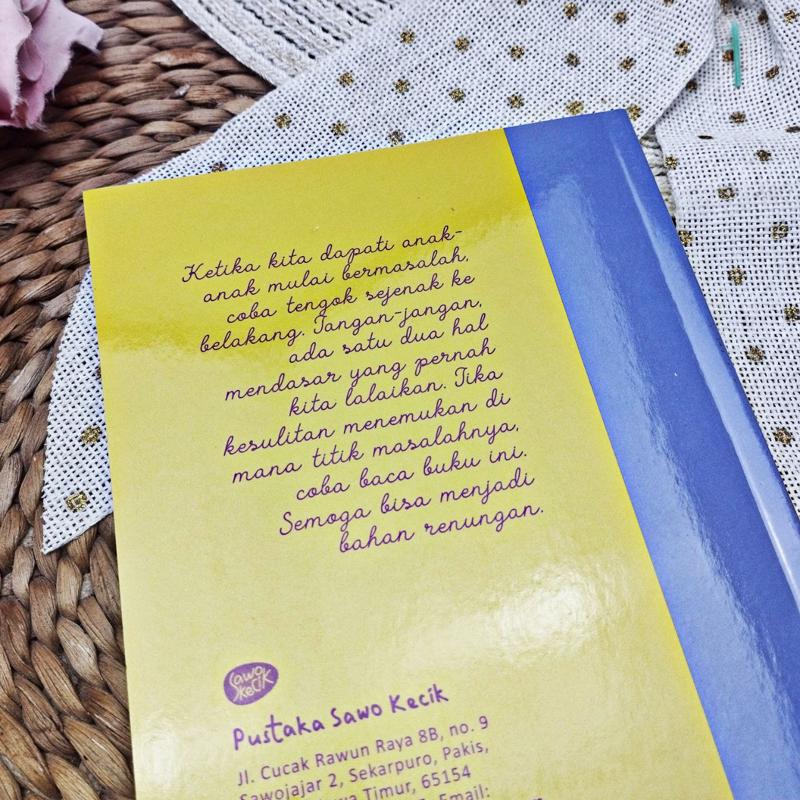 Ketika kita dapati anak-
anak mulai bermasalah,
coba tengok sejenak ke
belakang. Jangan-jangan,
ada satu dua hal
mendasar yang pernah
kita lalaikan. Jika
kesulitan menemukan di
mana titik masalahnya,
coba baca buku ini.
Semoga bisa menjadi
bahan renungan.
Sawo
Kecik
Pustaka Sawo Kecik
Jl. Cucak Rawun Raya 8B, no. 9
Sawojajar 2, Sekarpuro, Pakis,
Timur, 65154
Email: